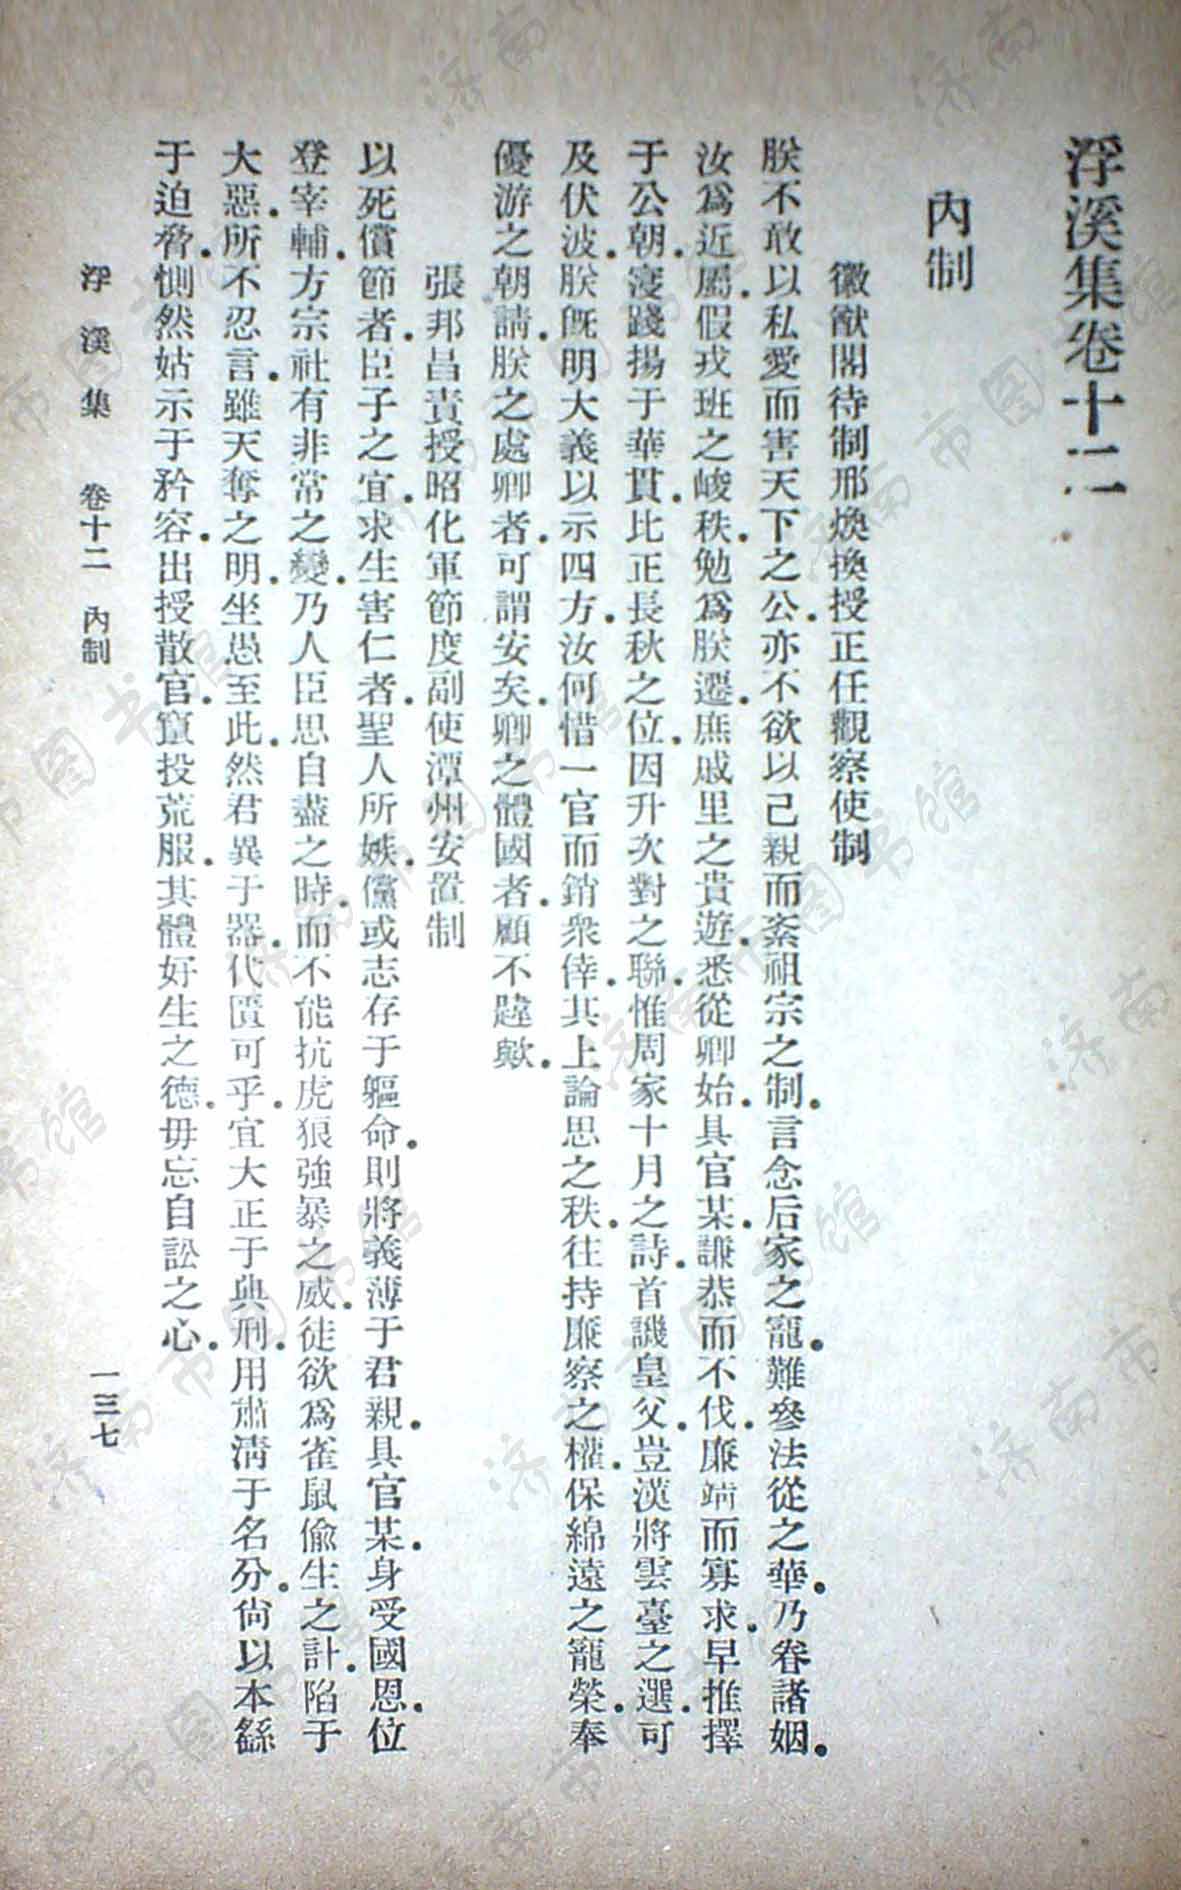 浮溪集卷十二
內制
徽猷閣待制邢煥換授正任觀察使制
朕不敢以私愛而害天下之公.亦不欲以己親而紊祖宗之制.言念后家之寵.難參法從之華.乃眷諸姻.
汝爲近屬.假戎班之峻秩.勉爲朕遷.庶戚里之貴遊.悉從卿始.具官某.謙恭而不伐.廉靖而寡求.早推擇
于公朝.寖踐揚于華貫.比正長秋之位.因升次對之聯.惟周家十月之詩.首譏皇父.豈漢將雲臺之選.可
及伏波.朕旣明大義以示四方.汝何惜一官而銷衆倖.其上論思之秩.往持廉察之權.保綿遠之寵榮.奉
優游之朝請.朕之處卿者.可謂安矣.卿之體國者.顧不韙歟.
張邦昌責授昭化軍節度副使潭州安置制
以死償節者.臣子之宜.求生害仁者.聖人所嫉.儻或志存于軀命.則將義薄于君親.具官某.身受國恩.位
登宰輔.方宗社有非常之變.乃人臣思自盡之時.而不能抗虎狼強暴之威.徒欲爲雀鼠偷生之計.陷于
大惡.所不忍言.雖天奪之明.坐愚至此.然君異于器.代匱可乎.宜大正于典刑.用肅淸于名分.尙以本繇
于迫脅.惻然姑示于矜容.出授散官.竄投荒服.其體好生之德.毋忘自訟之心.
浮溪集 卷十二 內制 一三七
济南市图书馆